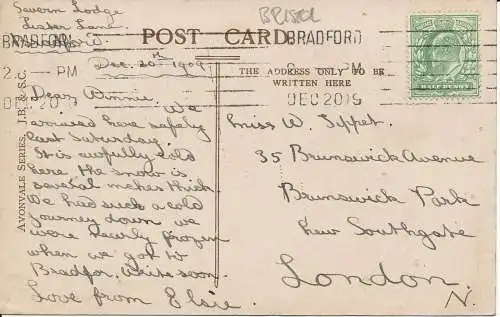 Severn Lodge
Lister Lane
Bradford
Dec. 20th 1909.
Dear Winnie. We
arrived here safely
last Saturday.
It is awfully cold
here the snow is
several inches thick.
We had such a cold
journey down we
were nearly frozen
when we got to
Bradfor, write soon.
Love from Elsie.
BRISTOL
POST CARD
THE ADDRESS ONLY TO BE
WRITTEN HERE
BRADFORD
2. - PM
DEC 20
BRADFORD
PM
DEC 20 19
HALF PENNY
AVONVALE SERIES, J.B. & S.C.
Miss W. Tippet.
35 Brunswick Avenue
Brunswick Park
New Southgate
London.
N.